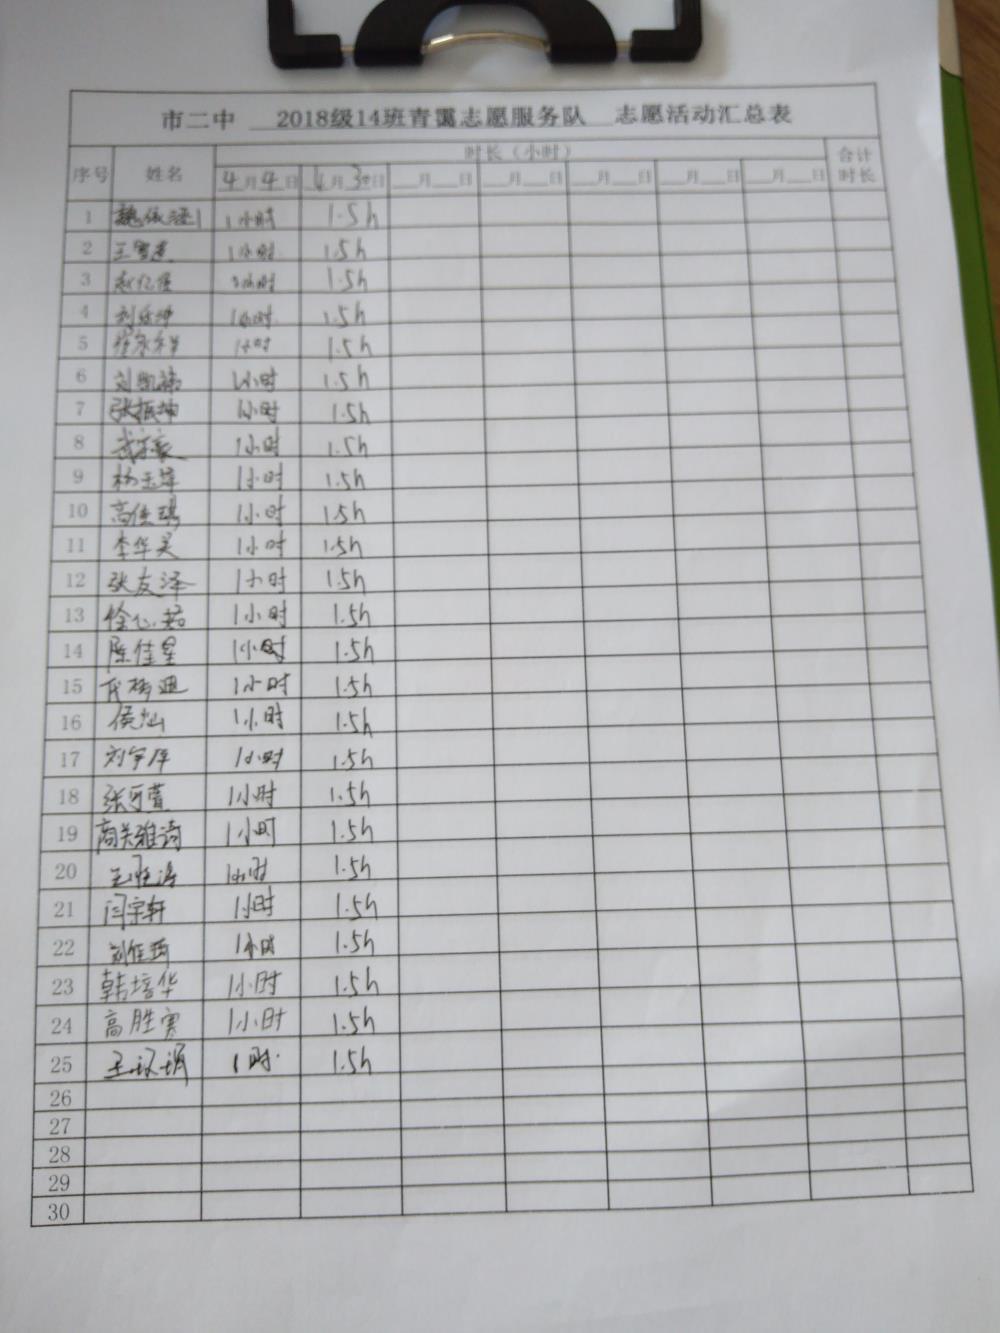 市二中 2018级14班青霭志愿服务队 志愿活动汇总表
序号 姓名 时长（小时） 合计时长
4月4日 月3日 月 日 月 日 月 日 月 日 月 日
1 1小时 1.5h
2 1小时 1.5h
3 小时 1.5h
4 1小时 1.5h
5 1小时 1.5h
6 刘凯瑞 1小时 1.5h
7 张振坤 1小时 1.5h
8 1小时 1.5h
9 杨玉萍 1小时 1.5h
10 高佳琪 1小时 1.5h
11 李华昊 1小时 1.5h
12 张友泽 1小时 1.5h
13 徐心茹 1小时 1.5h
14 陈佳星 1小时 1.5h
15 1小时 1.5h
16 侯灿 1小时 1.5h
17 刘宇泽 1小时 1.5h
18 张可萱 1小时 1.5h
19 商关雅诗 1小时 1.5h
20 1小时 1.5h
21 闫宗轩 1小时 1.5h
22 刘佳琦 1小时 1.5h
23 韩培华 1小时 1.5h
24 高胜寒 1小时 1.5h
25 1时 1.5h
26
27
28
29
30